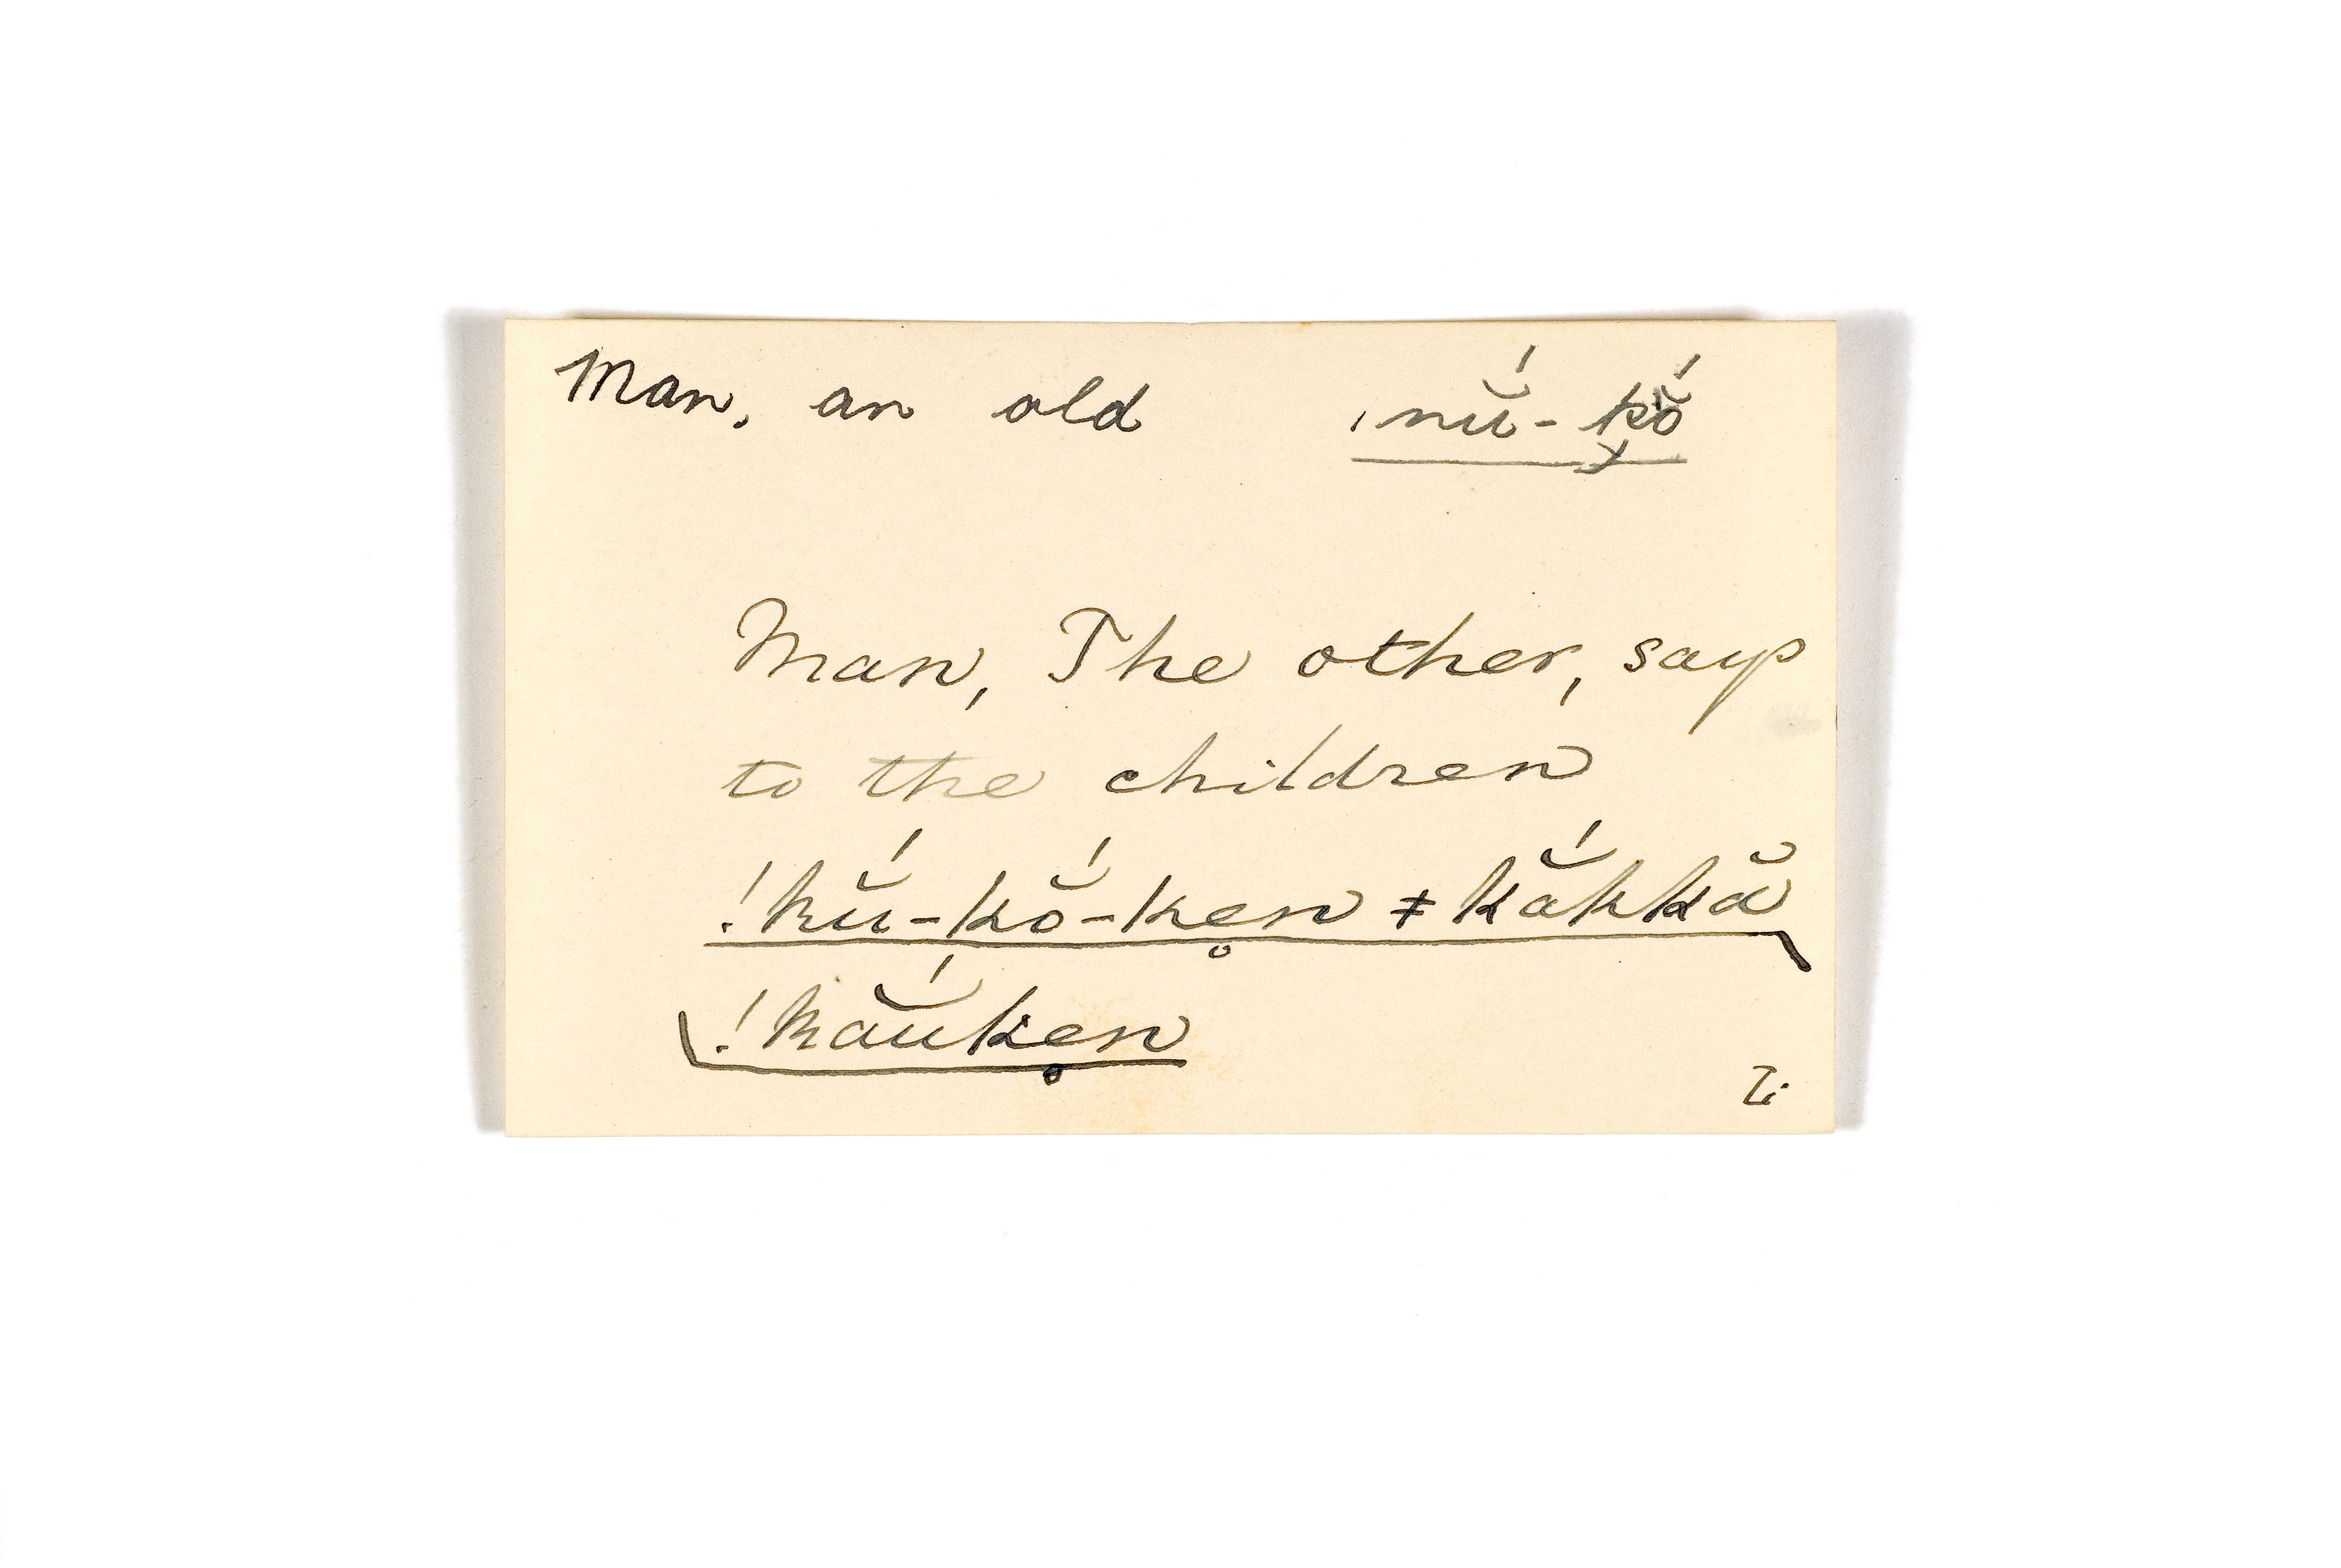 Man, an old ˌnŭ́-kŏ́
Man, The other, says
to the children
!kŭ́-kŏ́-ken̥ ǂkắkkă
!kắuken̥
Ti